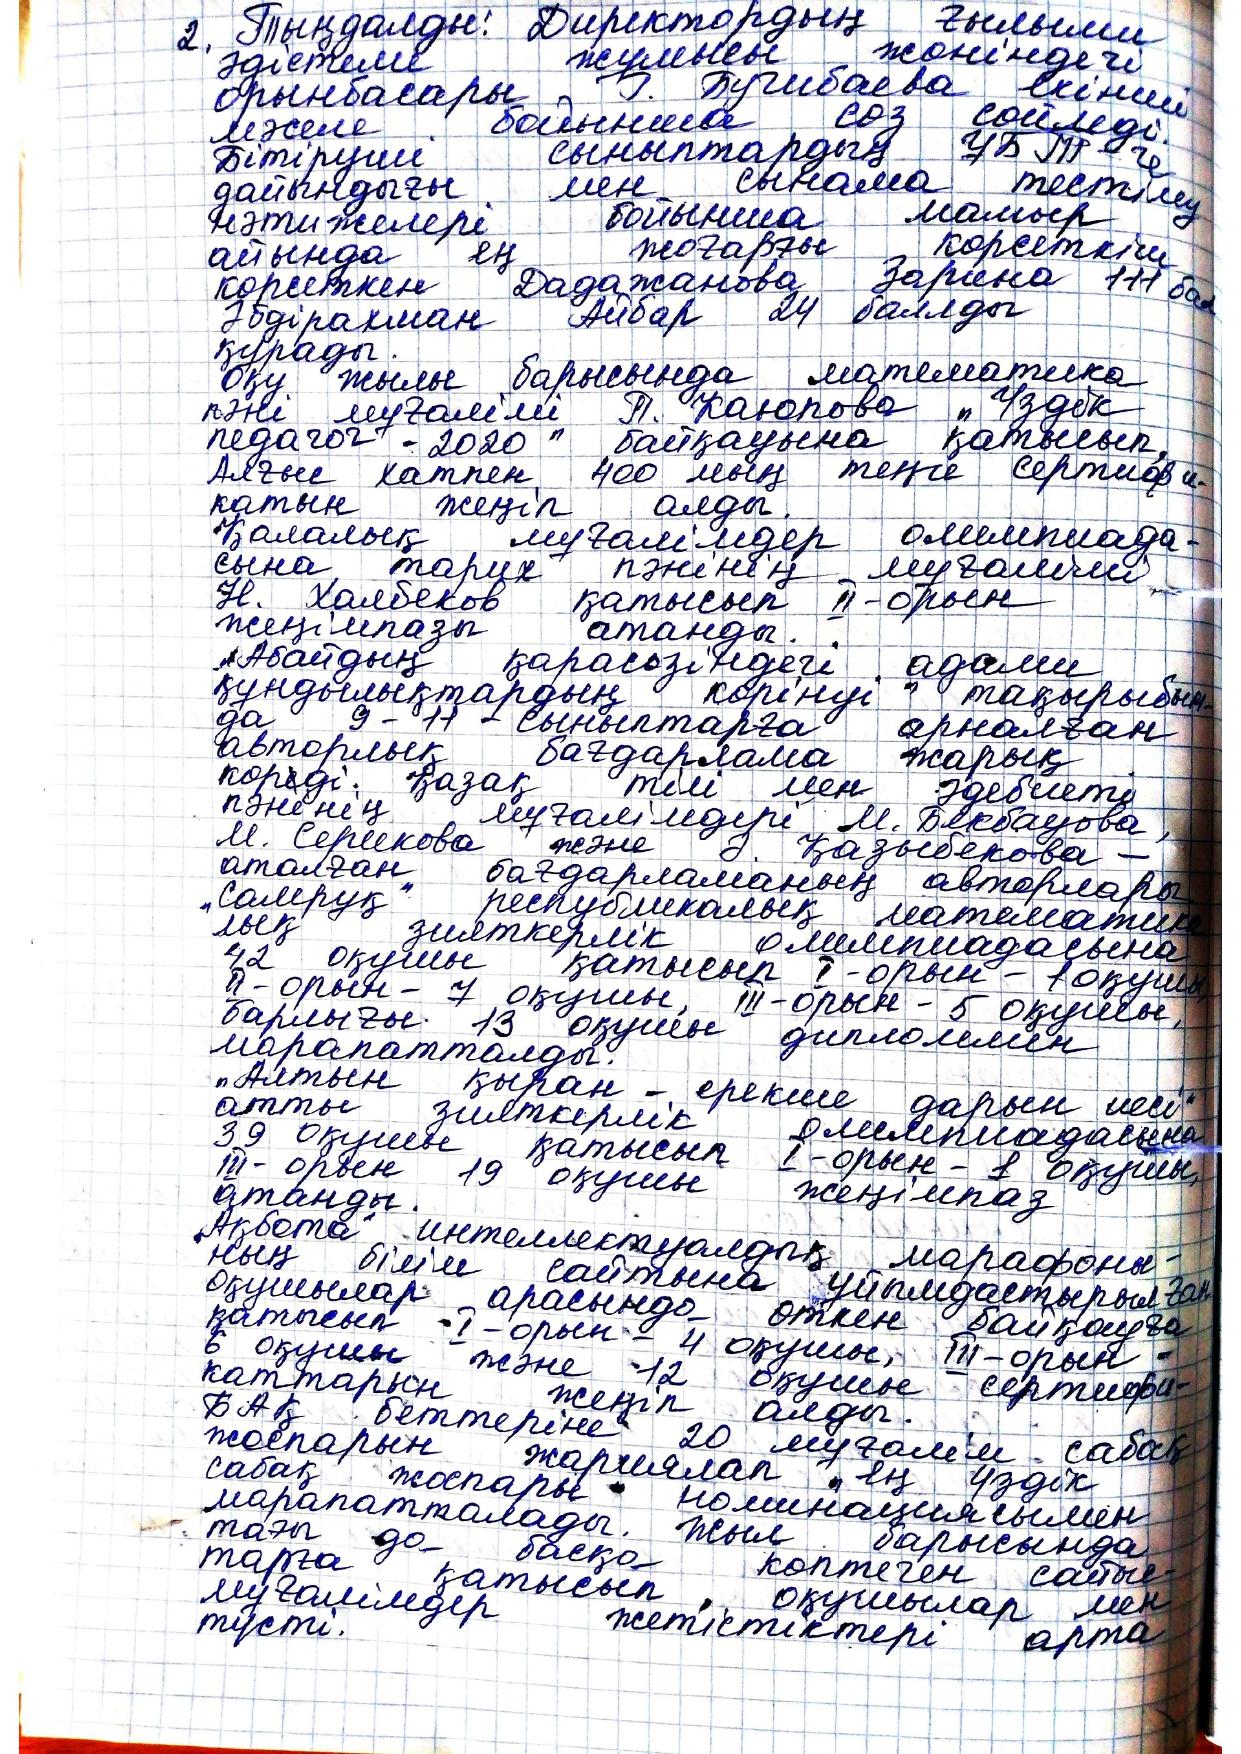 2. Тыңдалды: Директордың ғылыми
әдістеме жұмысы жөніндегі
орынбасары Г. Бугибаева екінші
мәселе бойынша сөз сөйледі.
Бітіруші сыныптардың ҰБТ-ге
дайындығы мен сынама тестілеу
нәтижелері бойынша мамыр
айында ең жоғарғы көрсеткіш
көрсеткен Дадажанова Зарина 111 бал
Әбдірахман Айбар 24 баллды
құрады.
Оқу жылы барысында математика
пәні мұғалімі П. Каюпова „Үздік
педагог - 2020" байқауына қатысып,
Алғыс хатпен 400 мың теңге сертифи-
катын жеңіп алды.
Қалалық мұғалімдер олимпиада-
сына тарих пәнінің мұғалімі
Н. Халбеков қатысып II-орын
жеңімпазы атанды.
„Абайдың қарасөзіндегі адами
құндылықтардың көрінуі" тақырыбын-
да 9-11-сыныптарға арналған
авторлық бағдарлама жарық
көреді. Қазақ тілі мен әдебиеті
пәнінің мұғалімдері М. Бекбауова,
М. Серикова және Э. Қазыбекова –
аталған бағдарламаның авторлары
„Самруқ" республикалық математика
лық зияткерлік олимпиадасына
42 оқушы қатысып I-орын - 1 оқушы,
II-орын - 7 оқушы, III-орын - 5 оқушы,
барлығы 13 оқушы дипломмен
марапатталды.
„Алтын қыран - ерекше дарын иесі"
атты зияткерлік олимпиадасына
39 оқушы қатысып I-орын - 1 оқушы,
III-орын 19 оқушы жеңімпаз
атанды.
„Ақбота" интеллектуалдық марафоны-
ның білім сайтына ұйымдастырылған
оқушылар арасында өткен байқауға
қатысып I-орын - 4 оқушы, III-орын -
6 оқушы және 12 оқушы сертифи-
каттарын жеңіп алды.
БАҚ беттеріне 20 мұғалім сабақ
жоспарын жариялап „Ең үздік
сабақ жоспары номинациясымен
марапатталады. Жыл барысында
тағы да басқа көптеген сайыс-
тарға қатысып, оқушылар мен
мұғалімдер жетістіктері арта
түсті.